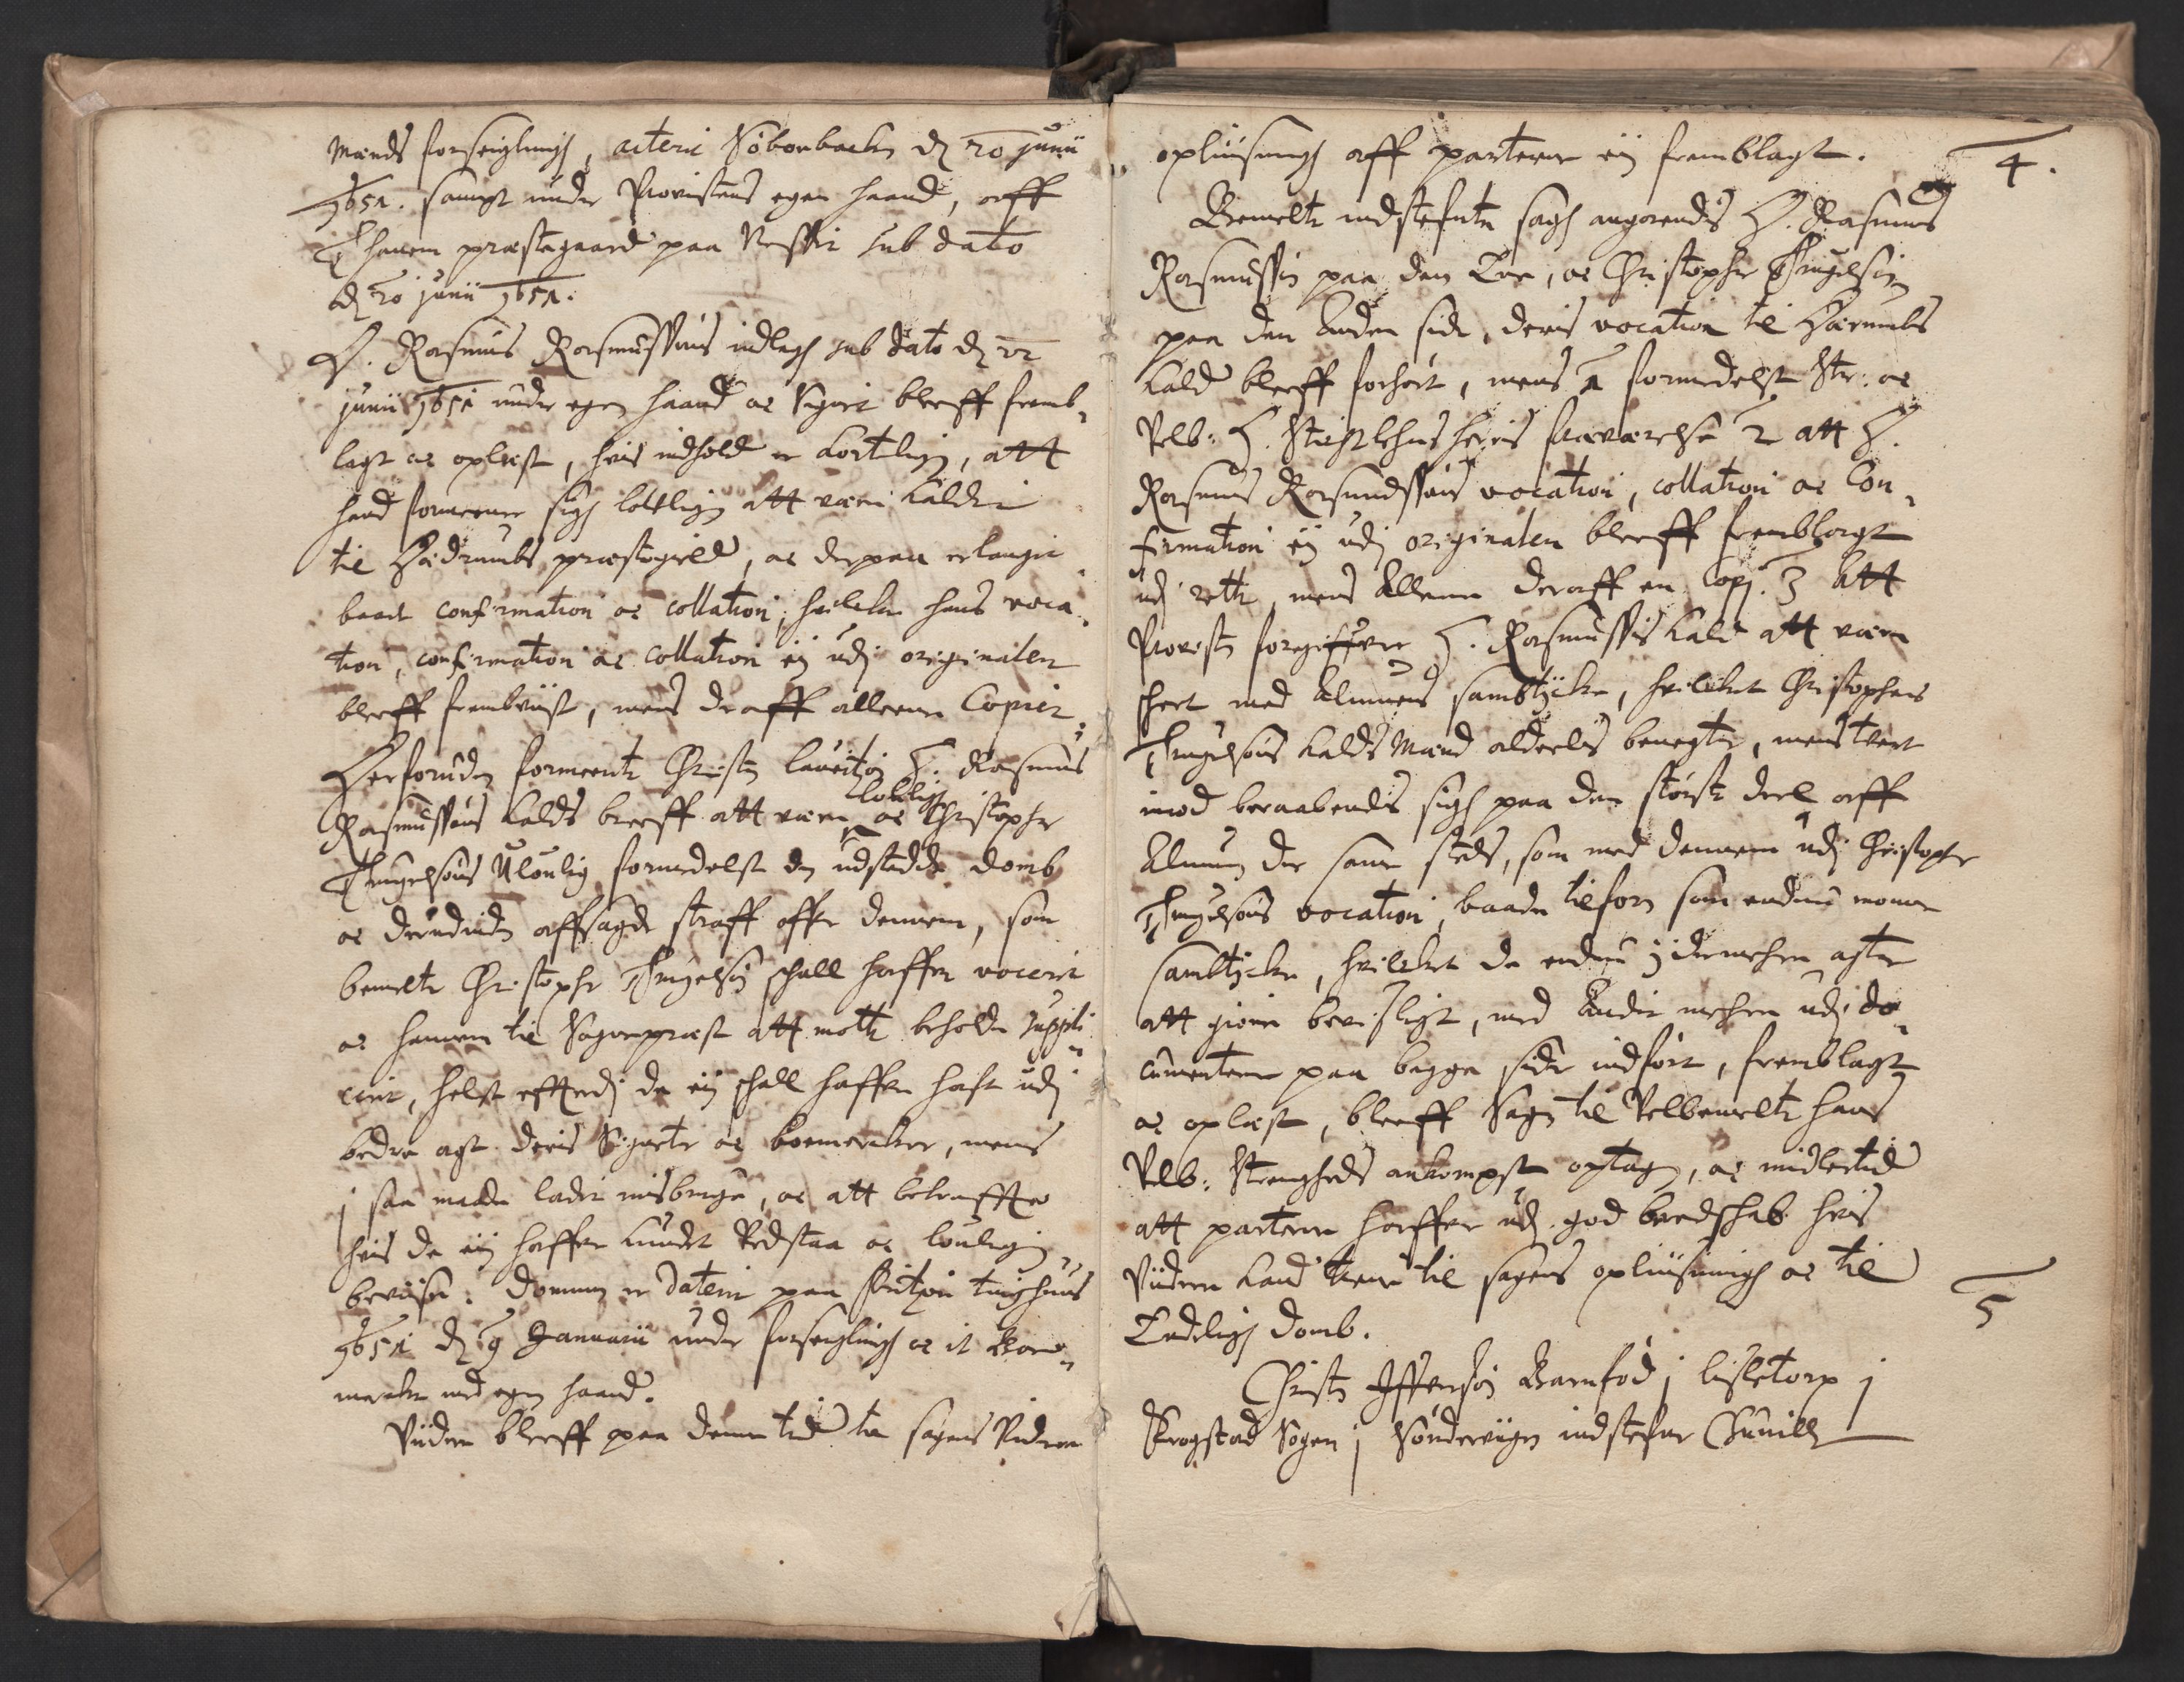 Mands forseigling, acteret Nöborbacken dj 20 Junii
1651. sampt under Provstens egen haand, aff
hannem præstegaard paa Nessit sub dato
dj 20 junii 1651.
H. Rasmus Rasmussøns indlegh sub dato dj 22
junii 1651 under egen haand oc Signet bleff fremb-
lagt oc oplæst, hvis indhold er kortelig, att
hand formeener sigh lovligen att være kaldet
til Hædrumbs præstegield, oc derpaa erlanget
baade confirmation oc collation, hvilcken hans voca-
tion, confirmation oc collation ej udj originalen
bleff frembviist, mens deraff alleene Copier.
Herforuden formeente Christen Lauritzøn H. Rasmus
Rasmussøns kalds breff att være lovligh oc Christopher
Thrugelsøns Ulovlig formedelst en udstedde domb
oc derudinden affsagde straff offver dennem, som
bemelte Christopher Thrugelsøn schall haffve voceret
oc hannem til Sogneprest att motte beholde suppli-
ceret, helst effterdj de ej schall haffve hafft udj
bedre agt deris Signeter oc boemercker, mens
j saa maade ladet misbruge, oc att bekreffte
hvis de ej haffver kundet Vedstaa oc lovligen
beviise. Dommen er dateret paa tinghuus
1651 dj 9 Januarii under forseigling oc it boe-
mercke med egen haand.
Viidere bleff paa denne tid til sagens Videre
oplüsningh aff parterne ej fremblagt.
4.
Bemelte indstefnte sagh angaaendis H. Rasmus
Rasmussøn paa den Ene, oc Christopher Thrugelsøn
paa den Anden side, deris vocation til Hærumbs
kald bleff forhørt, mens 1 formedelst Str: oc
Velb: H. Stathollers heris fraværelse 2 att H.
Rasmus Rasmussøns vocation, collation oc Con-
firmation ej udj originalen bleff fremblagt
udj rette mens Allene deraff en Copj. 3 Att
Provsten forgiffver H. Rasmussis kald att være
scheet med Almuens sambtycke, hvilcket Christophers
Thrugelsøns kalds Mænd aldeelis benegter, mens tvert
imod beraabendis sigh paa den störste deel aff
Almuen der samme steds, som med dennem udj Christopher
Thrugelsøns vocation, baade tilforn som endnu
sambtycke, hvilcket de endnu ydermehre acter
att giøre beviisligt, med Andet mehre udj do-
cumenterne paa begge sider indført, fremblagt
oc oplæst, bleff Sagen til Velbemelte hans
Velb: Strengheds ankompst optagen, oc midlertid
att parterne haffver udj god beredschab hvis
Viidere kand tiene til sagens oplüsningh oc til
Endeligh domb.
5
Christen Iffversøn Barnfød j lisletorp j
Krogstad Sogen j Søndervigen indstefner Gunild